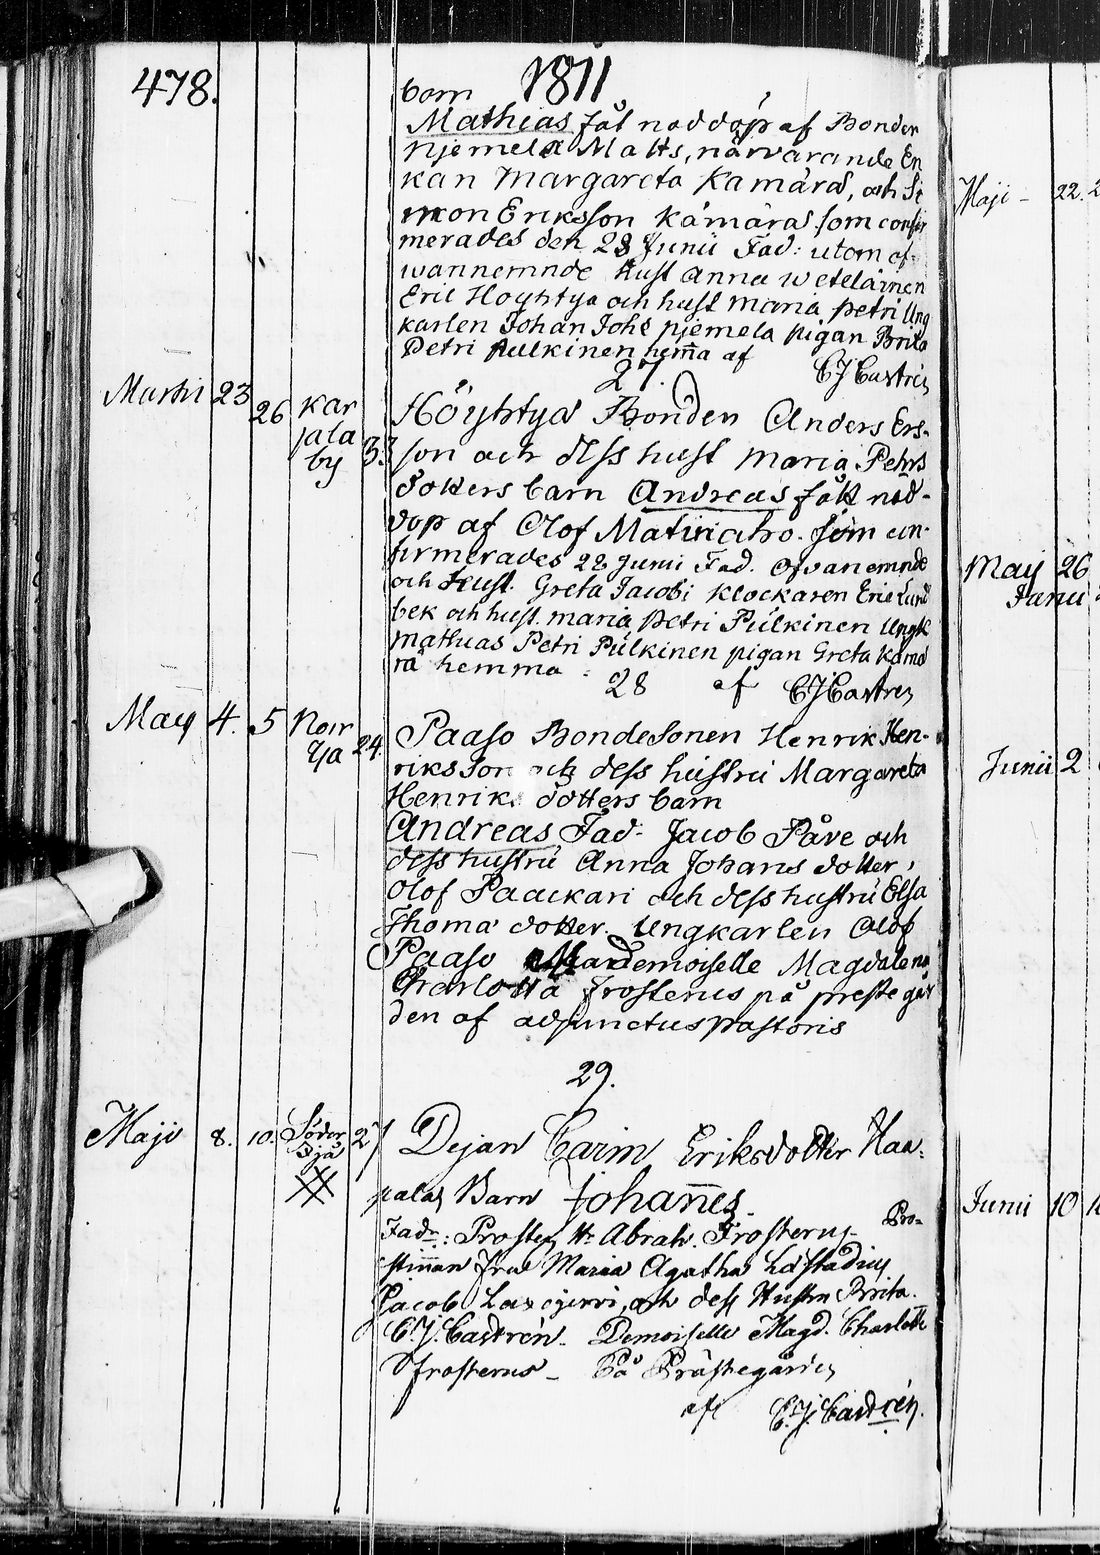 478.
1811
barn
Mathias fåt nöddop af Bonden
Njemelä Matts, närvarande En
kan Margareta Kamära, och Si
mon Eriksson Kämära som confir
merades den 28 Junii Fad: utom of=
wannemnde Hust Anna Weteläinen
Eric Höyhtya och hust Maria Petri Ung
karlen Johan Johs Njemela pigan Brita
Petri Pulkinen hemma af
CJ Castrén
27.
Martii 23 26 Kar
jala
by 33
Höyhtyä Bonden Anders Ers-
son och dess hust Maria Pehrs
dotters barn Andreas fått nöd-
dop af Olof Matinaho. som con-
firmerades 28 Junii Fad. Ofvanemnde
och Hust. Greta Jacobi Klockaren Eric Lund
bek och hust. Maria Petri Pulkinen Ungk
Mathias Petri Pulkinen pigan Greta Kämä
rä hemma
28 af CJ Castren
May 4. 5 Norr
24
Paaso Bondesonen Henrik Hen-
riksson och dess hustru Margareta
Henriks dotters barn
Andreas Fad- Jacob Påve och
dess hustru Anna Johans dotter,
Olof Paackari och dess hustru Elsa
Thomä dotter. Ungkarlen Olof
Paaso Mademoiselle Magdalena
Charlotta Frosterus på prestegår
den af adjunctus pastoris
29.
Maji 8. 10. Söder
27
Pejan Carin Eriksdotter Haa:
palas Barn Johannes.
Fadr: Prosten Hr Abrah. Frosterus Pro=
stinnan Fru Maria Agatha Lästadius
Jacob Laxojervi, och dess Hustru Brita.
C.J. Castrén- Demoiselle Magd. Charlotte
Frosterus- På Prästegården
af C.J. Castrén.
Maji - 22.
May 26
Junii
Junii 2
Junii 10